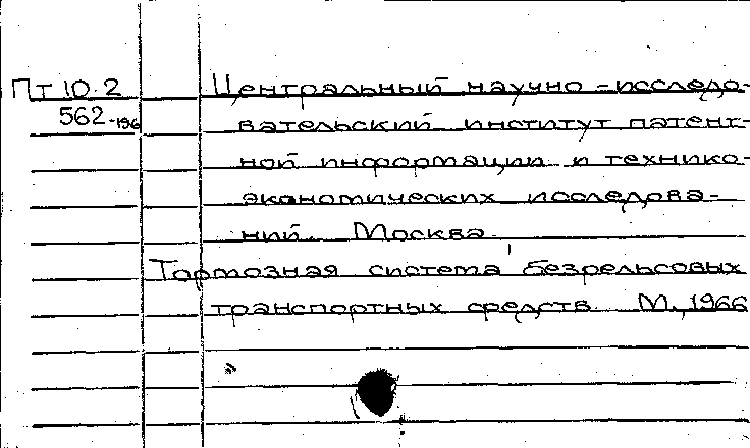 Пт 10.2 Центральный научно-исследо-
562-196 вательский институт патент-
ной информации и технико-
экономических исследова-
ний. Москва.
Тормозная система безрельсовых
транспортных средств. М., 1966